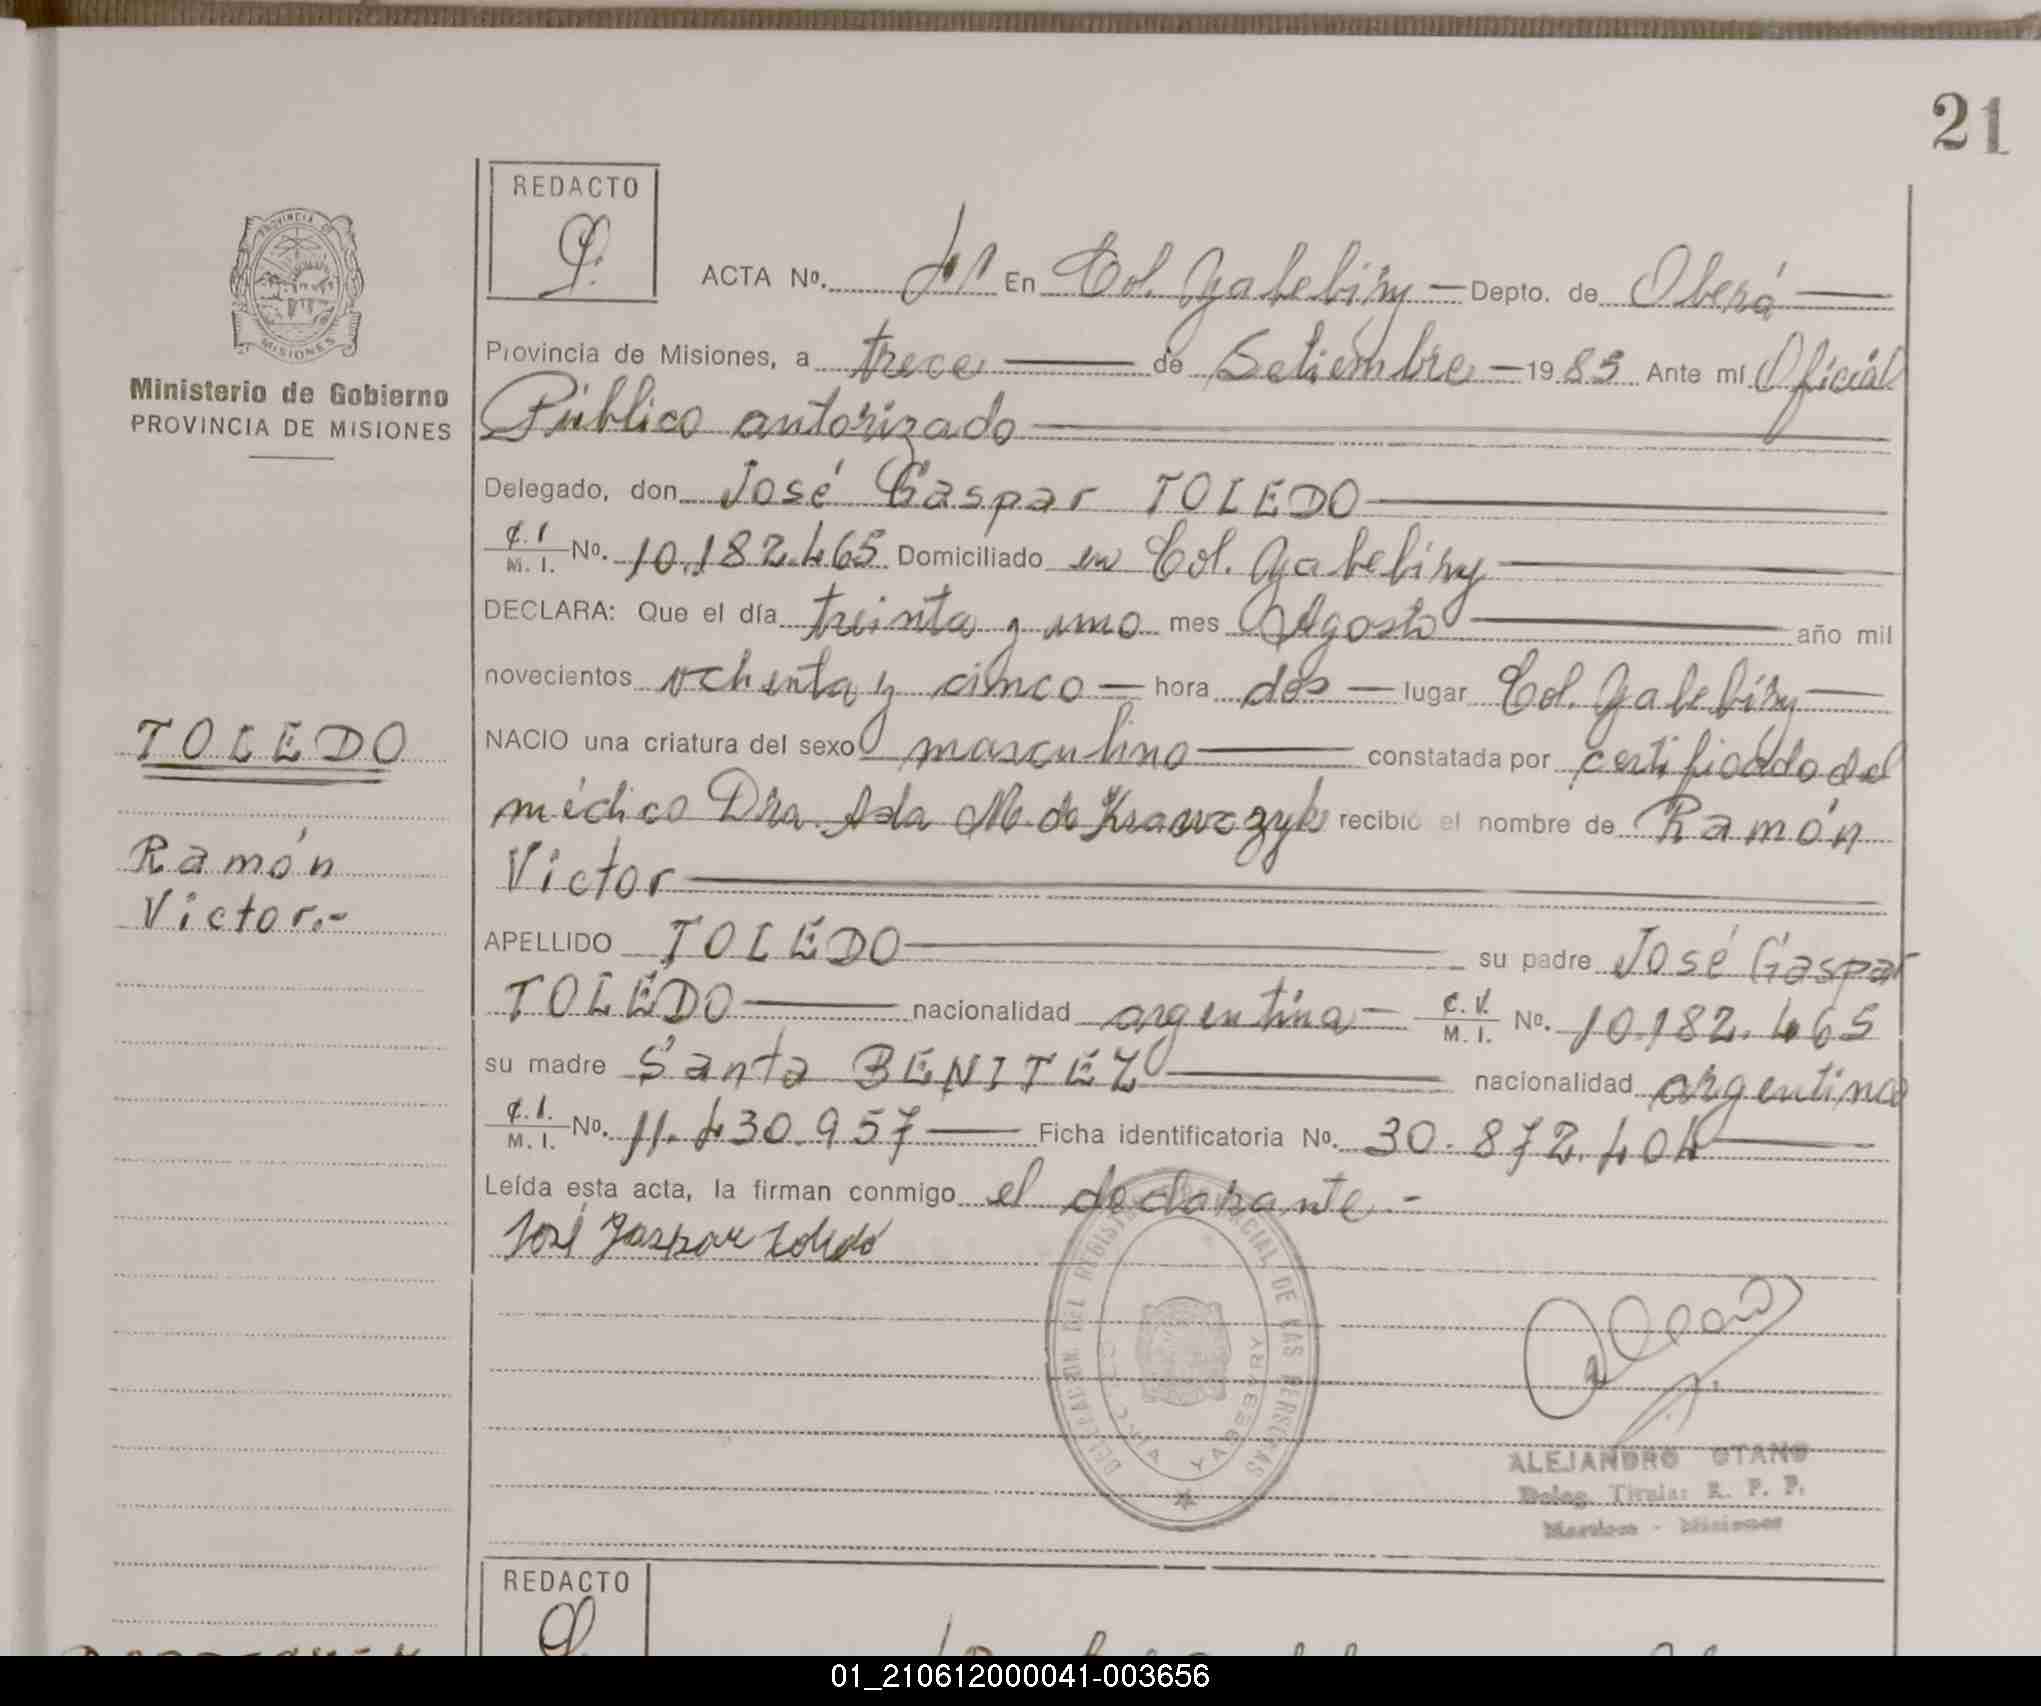 21
REDACTO
PROVINCIA DE
MISIONES
ACTA Nº. 41 En Col. Yabebiry — Depto. de Oberá
Provincia de Misiones, a trece de Setiembre — 1985 Ante mí Oficial
Ministerio de Gobierno
PROVINCIA DE MISIONES
Público autorizado
Delegado, don José Gaspar TOLEDO
C. I. M. I. Nº. 10.182.465 Domiciliado en Col. Yabebiry
DECLARA: Que el día treinta y uno mes Agosto año mil
novecientos ochenta y cinco — hora dos — lugar Col. Yabebiry
TOLEDO
NACIO una criatura del sexo masculino constatada por certificado del
médico Dra. Ada M. de Krawczyk recibió el nombre de Ramón
Ramón
Victor
Victor.-
APELLIDO TOLEDO su padre José Gaspar
TOLEDO nacionalidad argentina — C. I. M. I. Nº. 10.182.465
su madre Santa BENITEZ nacionalidad argentina
C. I. M. I. Nº. 11.430.957 Ficha identificatoria Nº. 30.872.404
Leída esta acta, la firman conmigo el declarante.-
José Gaspar Toledo
DELEGACION DEL REGISTRO PROVINCIAL DE LAS PERSONAS
YABEBIRY
ALEJANDRO OTANO
Deleg. Titular R. P. P.
Misiones
REDACTO
01_210612000041-003656